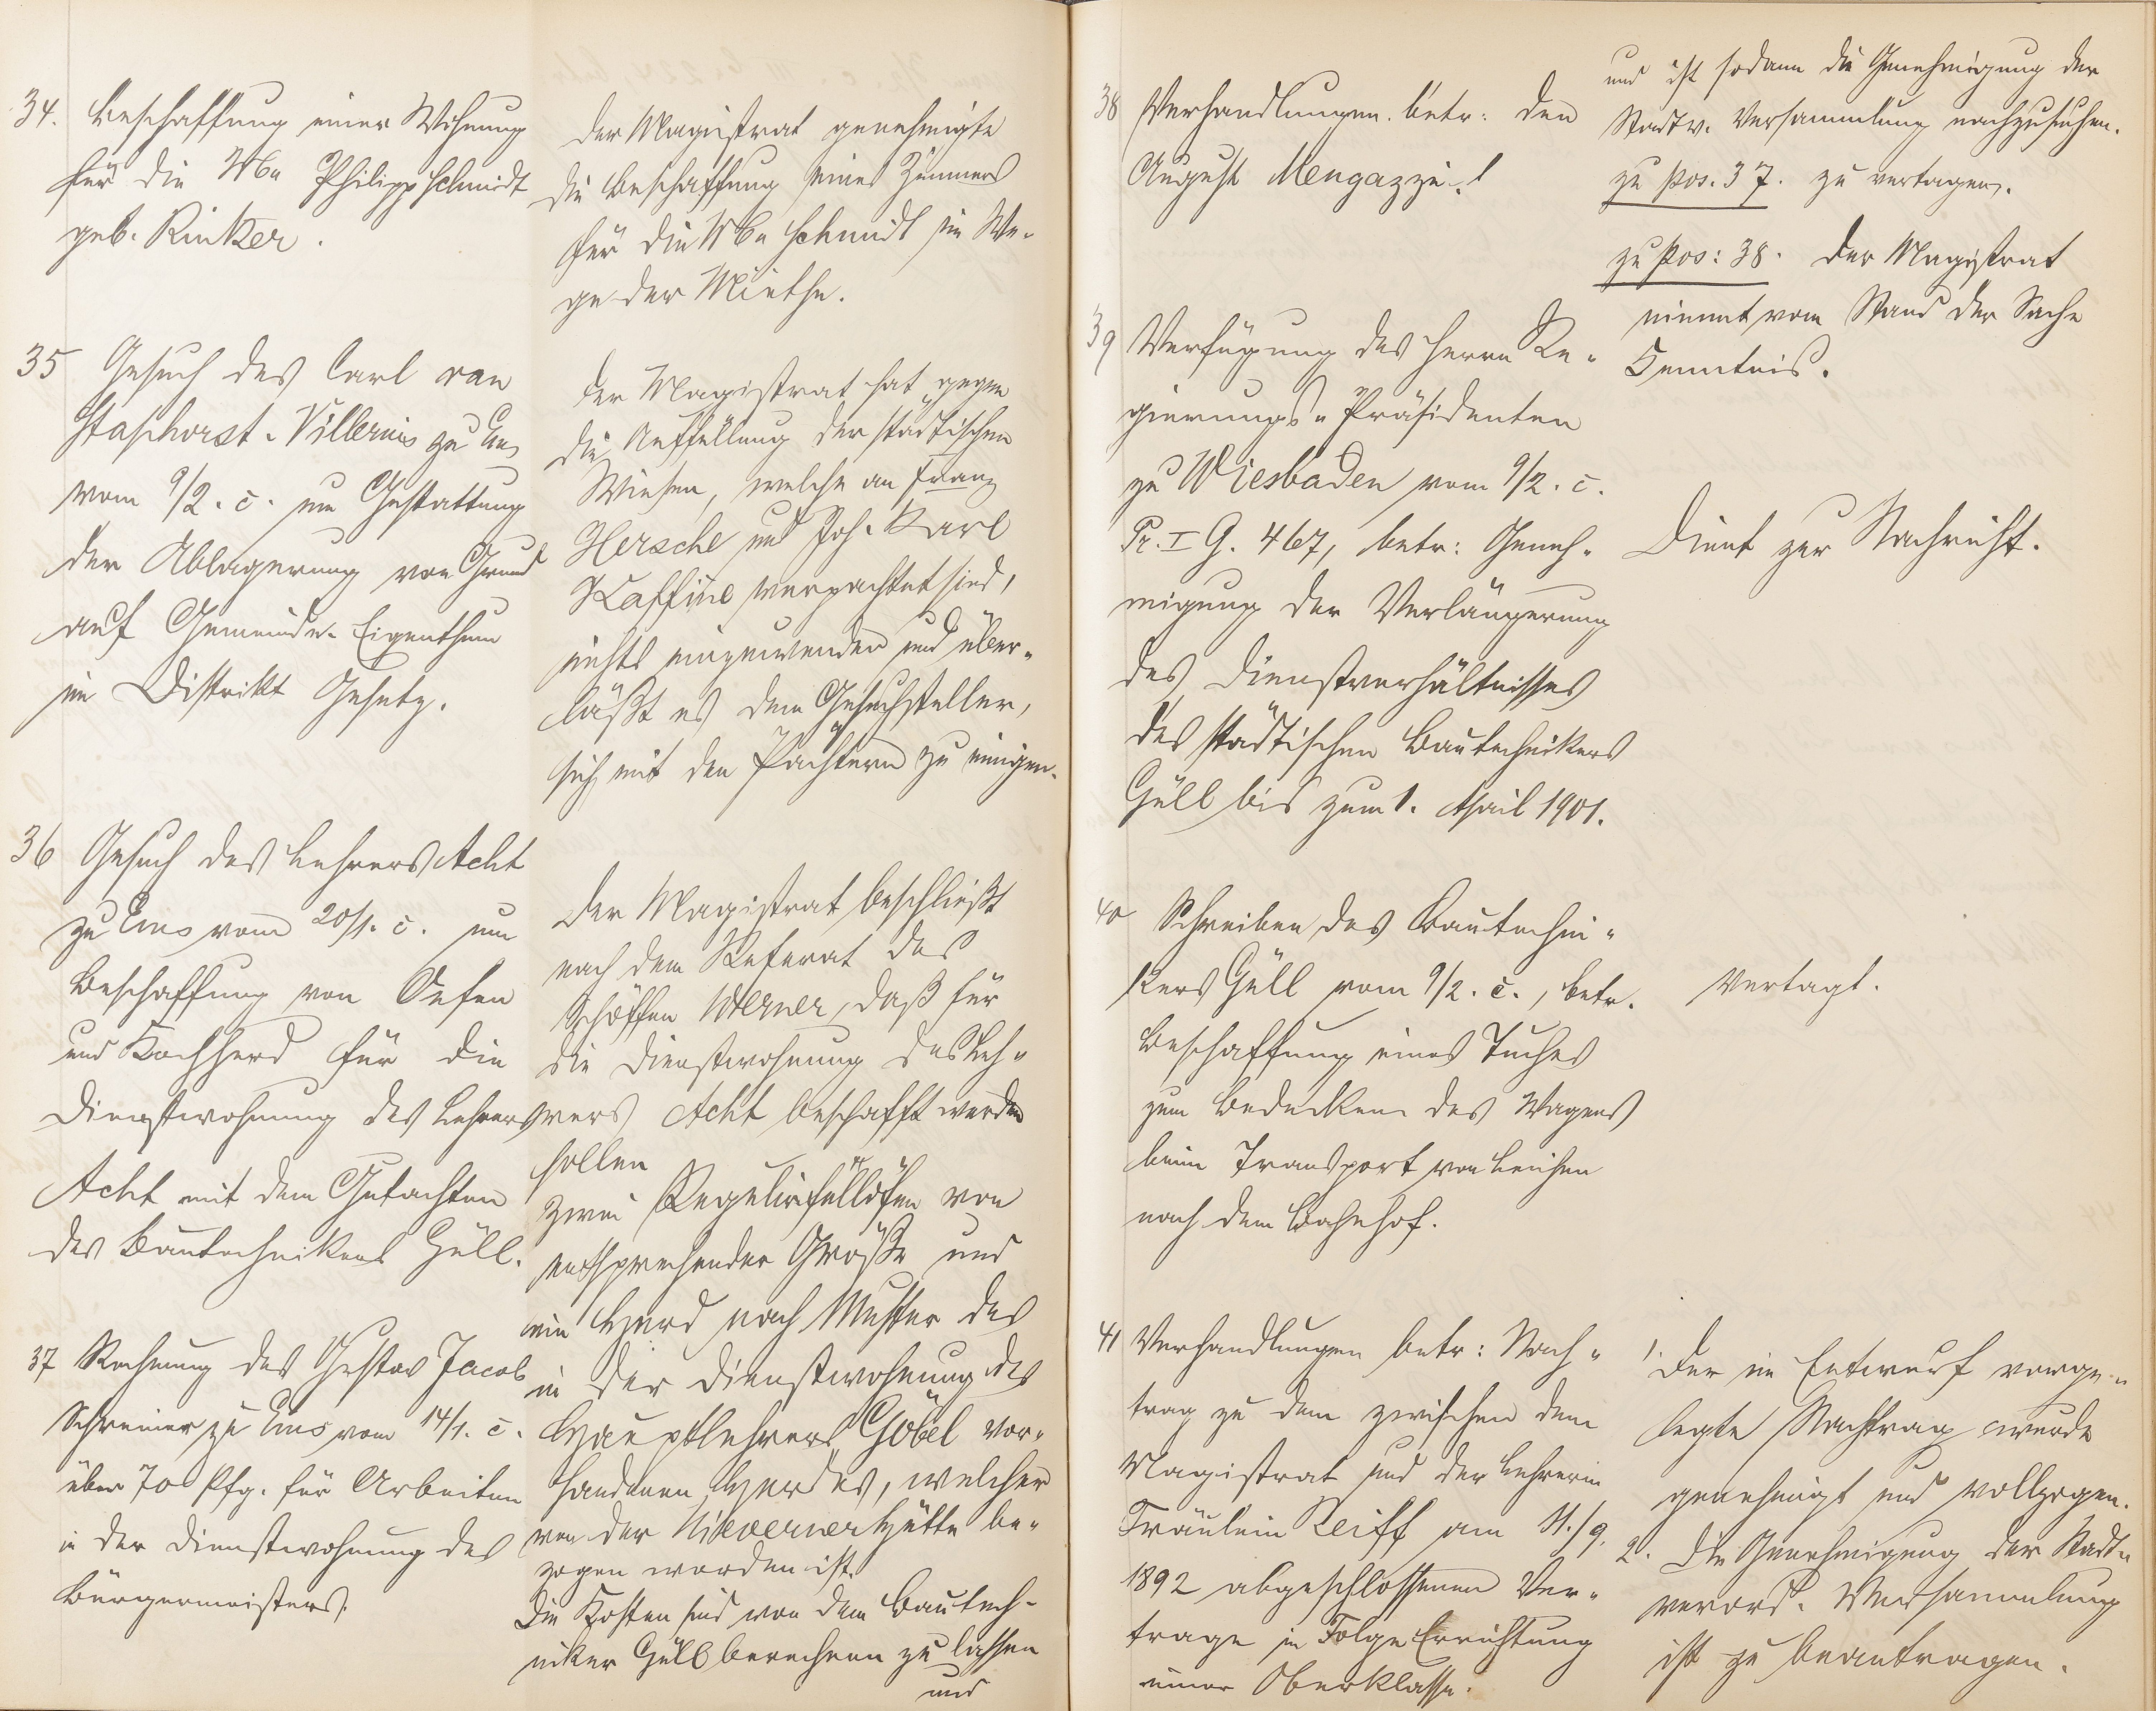 34. Beschaffung einer Wohnung
für die Wwe Philipp Schmidt
geb. Rinker.
Der Magistrat genehmigte
die Beschaffung eines Zimmers
für die Wwe Schmidt im We-
ge der Miethe.
35 Gesuch des Carl van
Staphorst-Villerius zu Ems
vom 9/2. c. um Gestattung
der Ablagerung von Grund
auf Gemeinde-Eigenthum
im Distrikt
Der Magistrat hat gegen
die Auffüllung der städtischen
Wiesen, welche an Franz
Hersche und Joh. Karl
Kaffine verpachtet sind,
nichts einzuwenden und über-
läßt es dem Gesuchsteller,
sich mit den Pächtern zu einigen.
36 Gesuch des Lehrers Acht
zu Ems vom 20/1. c. um
Beschaffung von Oefen
und Kochherd für die
Dienstwohnung des Lehrers
Acht mit dem Gutachten
des Bautechnikers Güll.
Der Magistrat beschließt
nach dem Referat des
Schöffen Werner, daß für
die Dienstwohnung des Leh-
rers Acht beschafft werden
sollen
zwei Regulirfüllöfen von
entsprechender Größe und
ein Herd nach Muster des
in der Dienstwohnung des
Hauptlehrers Göbel vor-
handenen Herdes, welcher
von der Nieverner Hütte be-
zogen worden ist.
Die Kosten sind von dem Bautech-
niker Güll berechnen zu lassen
und
37 Rechnung des Gustav Jacob
Schreiner zu Ems vom 14/1. c.
über 70 Pfg. für Arbeiten
in der Dienstwohnung des
Bürgermeisters.
38 Verhandlungen betr: den
August Mengazzi.
und ist sodann die Genehmigung der
Stadtv. Versammlung nachzusuchen.
zu Pos. 37. zu vertagen.
zu Pos: 38. Der Magistrat
nimmt vom Stand der Sache
Kenntnis.
39 Verfügung des Herrn Re-
gierungs-Präsidenten
zu Wiesbaden vom 9/2. c.
Pr. I G. 467, betr: Geneh-
migung der Verlängerung
des Dienstverhältnisses
des städtischen Bautechnikers
Güll bis zum 1. April 1901.
Dient zur Nachricht.
40 Schreiben des Bautechni-
kers Güll vom 9/2. c., betr.
Beschaffung eines Tuches
zum Bedecken des Wagens
beim Transport von Leichen
nach dem Bahnhof.
Vertagt.
41 Verhandlungen betr: Nach-
trag zu dem zwischen dem
Magistrat und der Lehrerin
Fräulein Reiff am 11./9.
1892 abgeschlossenen Ver-
trage in Folge Errichtung
einer Oberklasse.
1. Der im Entwurf vorge-
legte Nachtrag wurde
genehmigt und vollzogen.
2. Die Genehmigung der Stadt-
verord. Versammlung
ist zu beantragen.